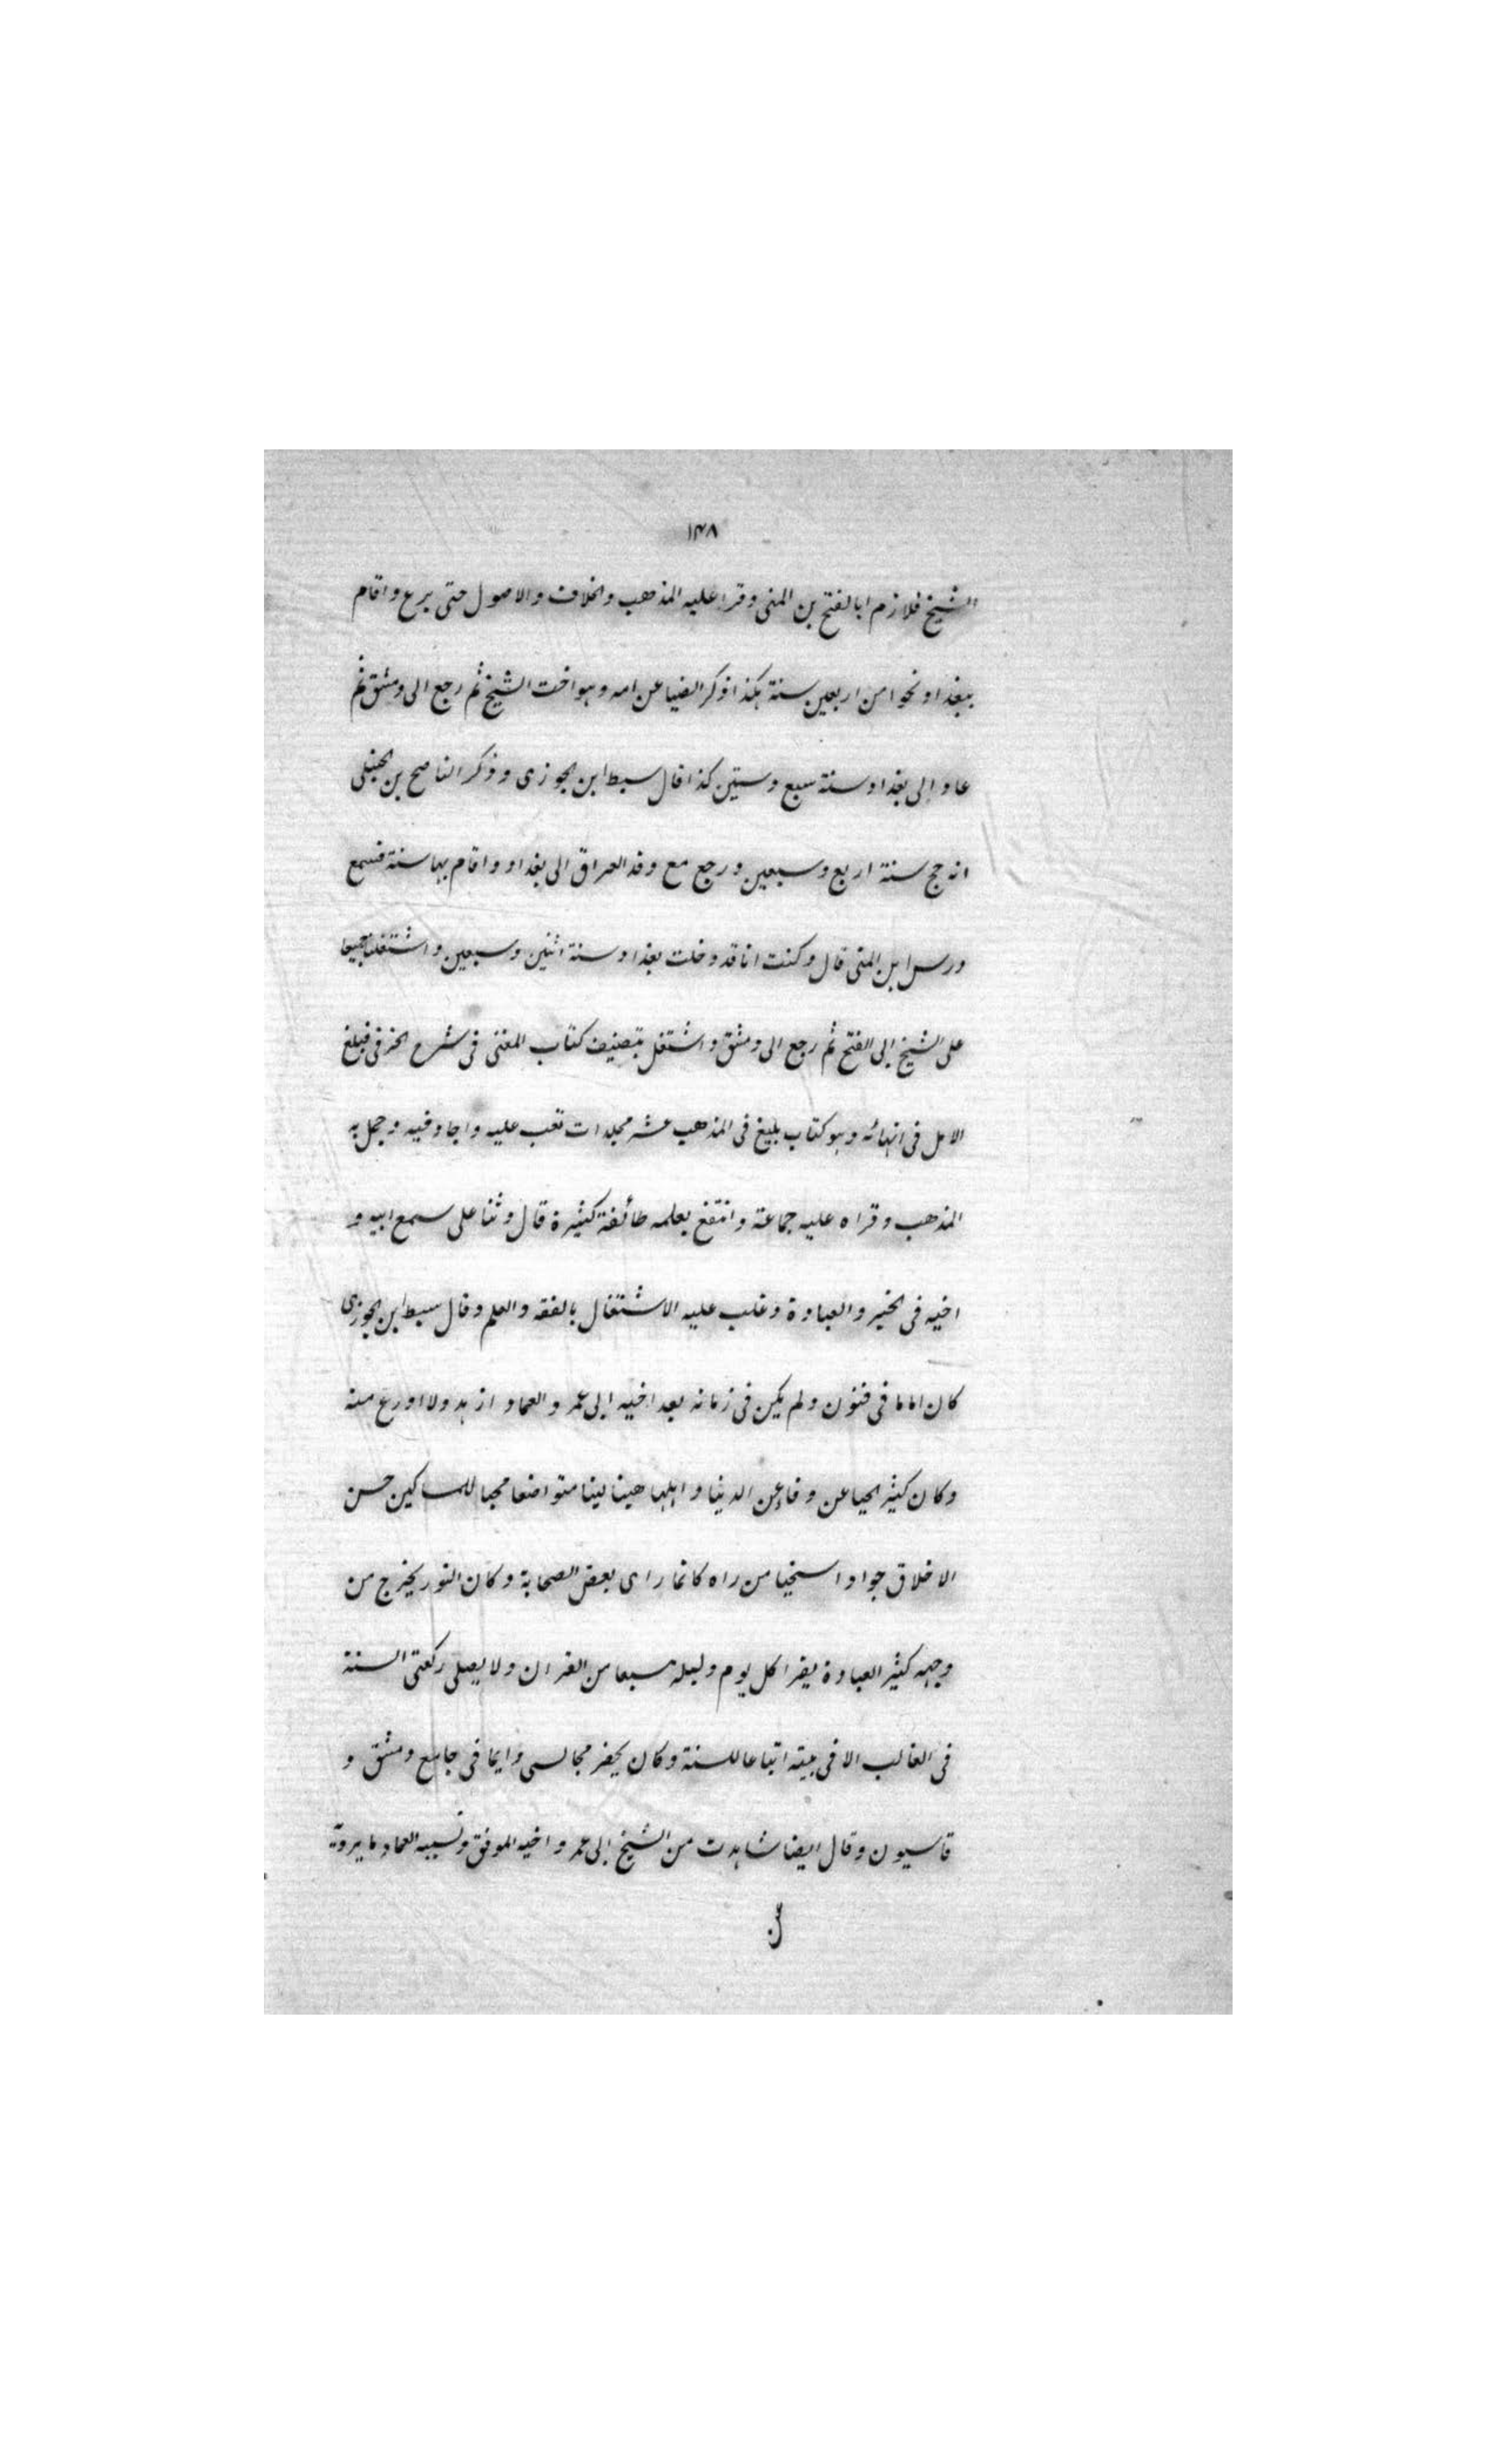 ١٣٨
الشيخ فلازم ابا الفتح بن المنى وقرا عليه المذهب والخلاف والاصول حتى برع واقام
ببغداد نحوا من اربعين سنة هكذا ذكر الضيا عن امه وهو اخت الشيخ ثم رجع الى دمشق ثم
عاد الى بغداد سنة سبع وستين كذا قال سبط ابن الجوزى وذكر الناصح بن الحنبلى
انه حج سنة اربع وسبعين ورجع مع وفد العراق الى بغداد واقام بها سنة فسمع
درس ابن المنى قال وكنت انا قد دخلت بغداد سنة اثنين وسبعين واشتغلنا جميعا
على الشيخ ابى الفتح ثم رجع الى دمشق واشتغل بتصنيف كتاب المغنى فى شرح الخرقى فبلغ
الامل فى انهائه وهو كتاب بليغ فى المذهب عشر مجلدات تعب عليه واجاد فيه وجمل به
المذهب وقراه عليه جماعة وانتفع بعلمه طائفة كثيرة قال وثنا على سمع ابيه و
اخيه فى الخير والعبادة وغلب عليه الاشتغال بالفقه والعلم وقال سبط ابن الجوزى
كان اماما فى فنون ولم يكن فى زمانه بعد اخيه ابى عمر والعماد ازهد ولا اورع منه
وكان كثير الحيا عن وفا عن الدنيا واهلها هينا لينا متواضعا محبا للمساكين حسن
الاخلاق جوادا سخيا من راه كانما راى بعض الصحابة وكان النور يخرج من
وجهه كثير العبادة يقرا كل يوم وليلة سبعا من القران ولا يصلى ركعتى السنة
فى الغالب الا فى بيته اتباعا للسنة وكان يحضر مجالسى دايما فى جامع دمشق و
قاسيون وقال ايضا شاهدت من الشيخ ابى عمر واخيه الموفق ونسيبه العماد ما يرويه